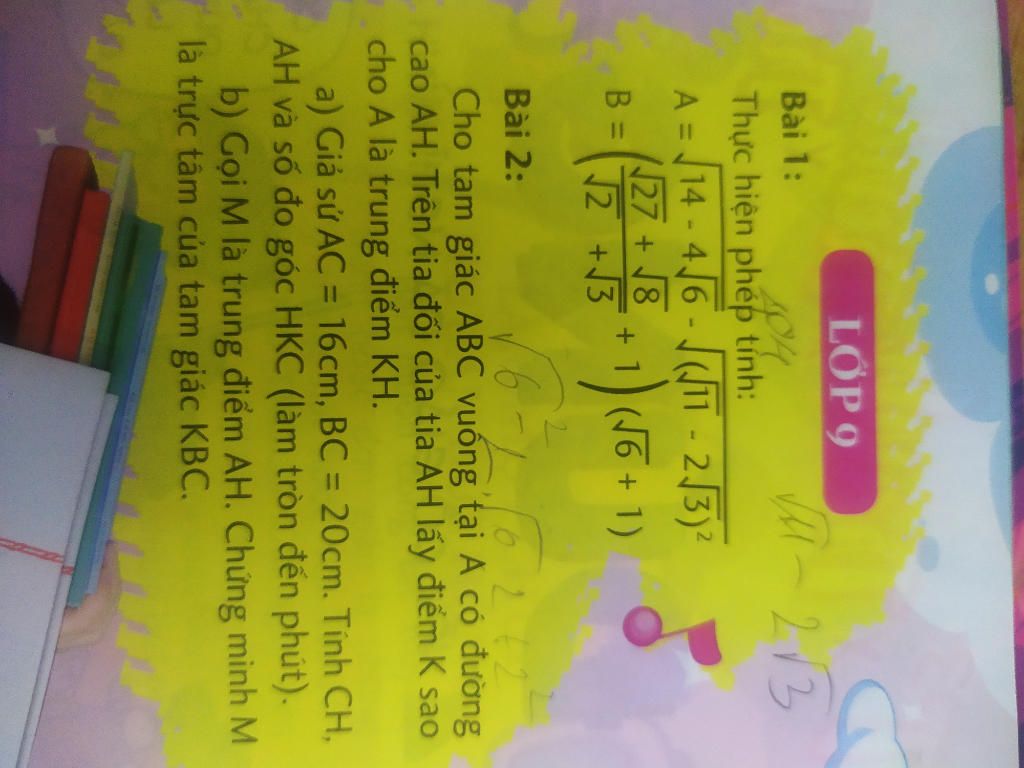 LỚP 9
Bài 1:
Thực hiện phép tính:
A = √(14 - 4√6) - √((√11 - 2√3)²)
B = ((√27 + √8)/(√2 + √3) + 1)(√6 + 1)
Bài 2:
Cho tam giác ABC vuông tại A có đường
cao AH. Trên tia đối của tia AH lấy điểm K sao
cho A là trung điểm KH.
a) Giả sử AC = 16cm, BC = 20cm. Tính CH,
AH và số đo góc HKC (làm tròn đến phút).
b) Gọi M là trung điểm AH. Chứng minh M
là trực tâm của tam giác KBC.
√11 - 2√3